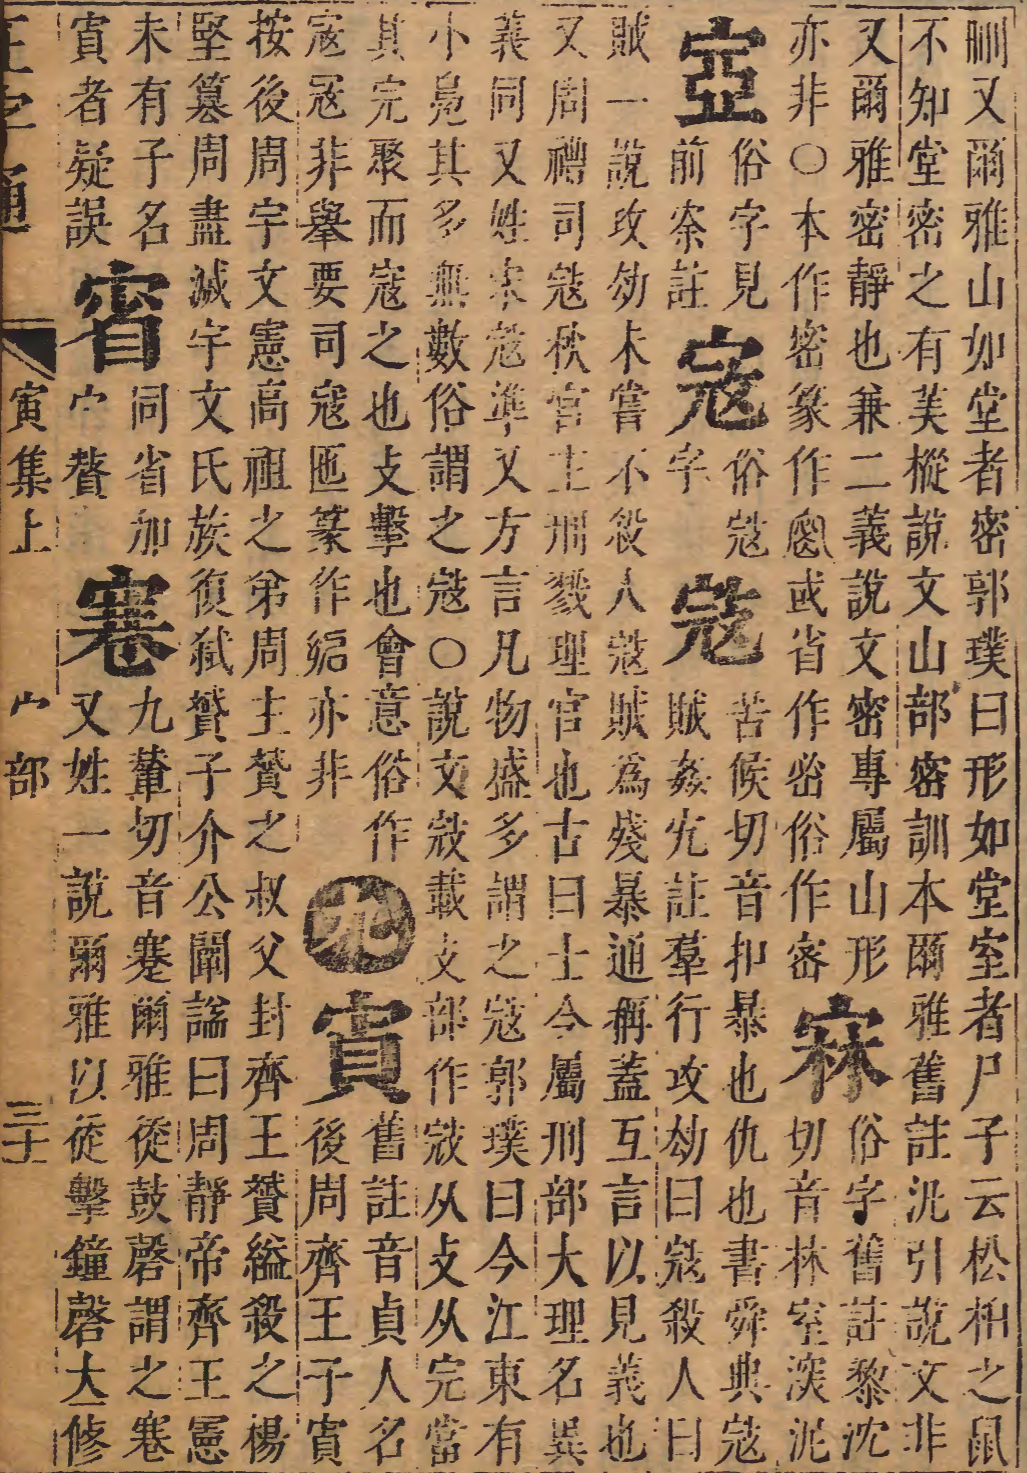 刪又爾雅山如堂者密郭璞曰形如堂室者尸子云松柏之鼠
不知堂密之有美樅說文山部密訓本爾雅舊註汎引說文非
又爾雅密靜也兼二義說文密專屬山形
亦非○本作密篆作或省作宓俗作宻
俗字舊註黎沈
切音林室深泥
俗字見
前奈註
俗寇
字
苦候切音扣暴也仇也書舜典寇
賊姦宄註羣行攻劫曰寇殺人曰
賊一說攻劫未嘗不殺人寇賊為殘暴通稱蓋互言以見義也
又周禮司寇秋官主刑戮理官也古曰士今屬刑部大理名異
義同又姓宋寇準又方言凡物盛多謂之寇郭璞曰今江東有
小鳧其多無數俗謂之寇○說文寇載攴部作寇从攴从完當
其完聚而寇之也攴擊也會意俗作
寇冦非舉要司寇匜篆作亦非
賔
舊註音貞人名
後周齊王子賔
按後周宇文憲高祖之弟周主贇之叔父封齊王贇縊殺之楊
堅簒周盡滅宇文氏族復弒贇子介公闡謚曰周靜帝齊王憲
未有子名
賔者疑誤
同省加
宀贅
九輦切音蹇爾雅徒鼓磬謂之寋
又姓一說爾雅以徒擊鐘磬大修
正字通
寅集上
宀部
三十